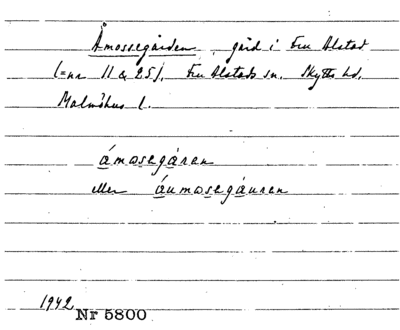 Åmossegården, gård i Fru Alstad
(=nr 11 & 25). Fru Alstads sn. Skytts hd.
Malmöhus l.
åmosegåren
eller áumosegáuren
1942 Nr 5800